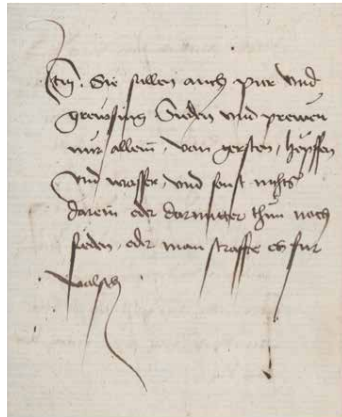 Itm. Sie sullen auch pir vnd
grewssing Sieden vnd prewen
nur allein, von gersten, hopffen
Vnd wasser, vnd sonst nichts
darein oder darunter thun noch
sieden, oder man straffe es fur
valsch